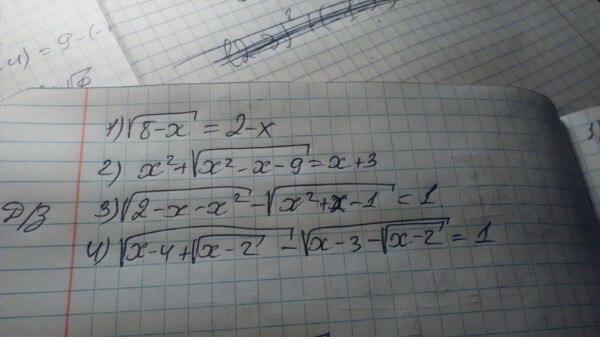 4) = 9 - (-
√6
1) √(8-x) = 2-x
2) x² + √(x² - x - 9) = x + 3
Д/З 3) √(2-x-x²) - √(x²+x-1) = 1
4) √(x-4+√(x-2)) - √(x-3-√(x-2)) = 1